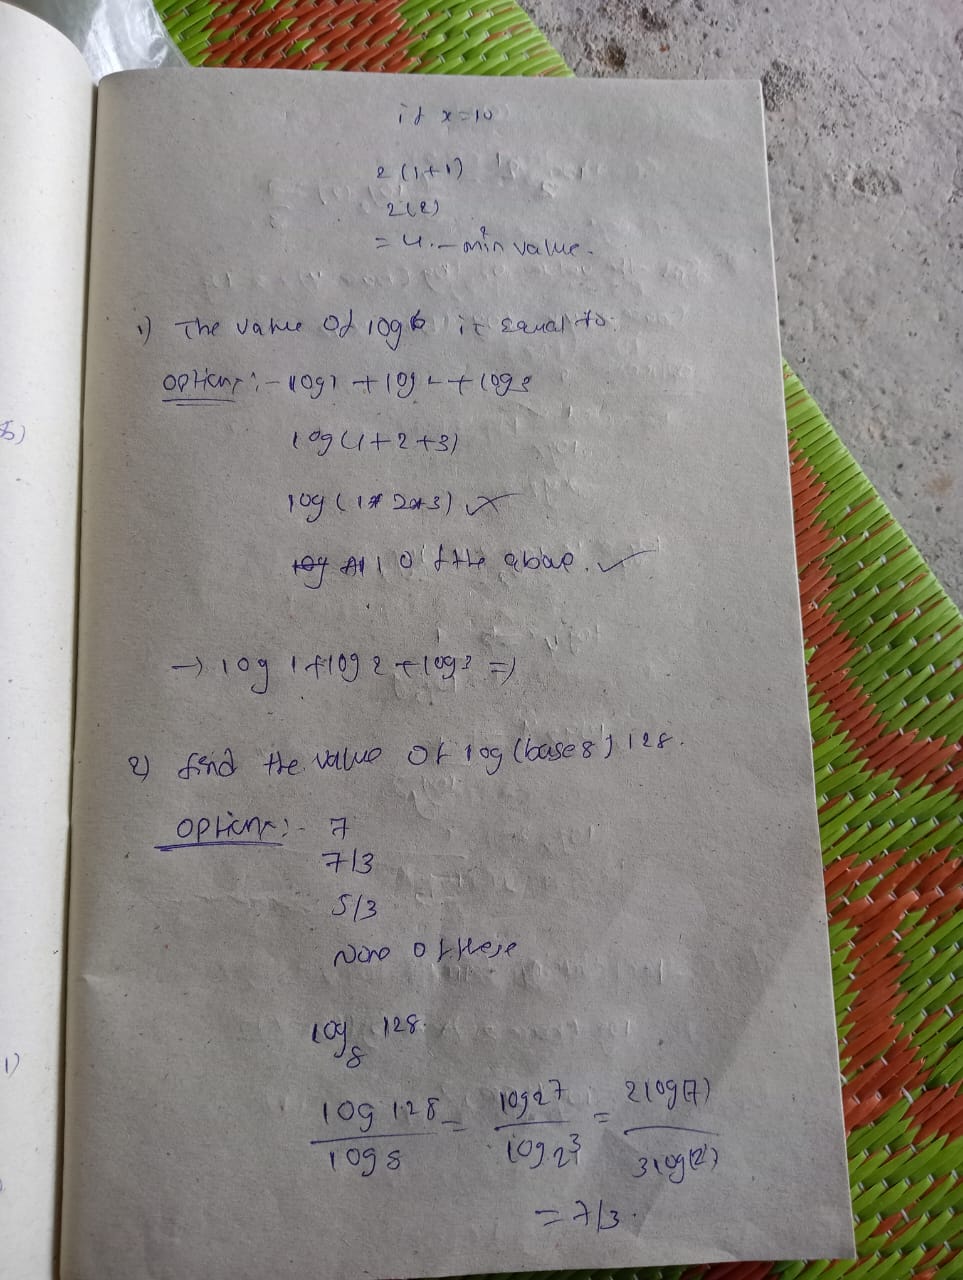 if x=10
2 (1+1)
2(2)
= 4. - min value.
1) The value of log6 is equal to:
options:- log1 + log2 + log3
log(1+2+3)
log(1*2*3) ×
all of the above. ✓
→ log 1 + log 2 + log3 =)
2) find the value of log (base8) 128.
options:- 7
7/3
5/3
None of these
log₈ 128.
log 128 / log 8 = log2⁷ / log2³ = 2log(7) / 3log(2)
= 7/3.
5)
1)